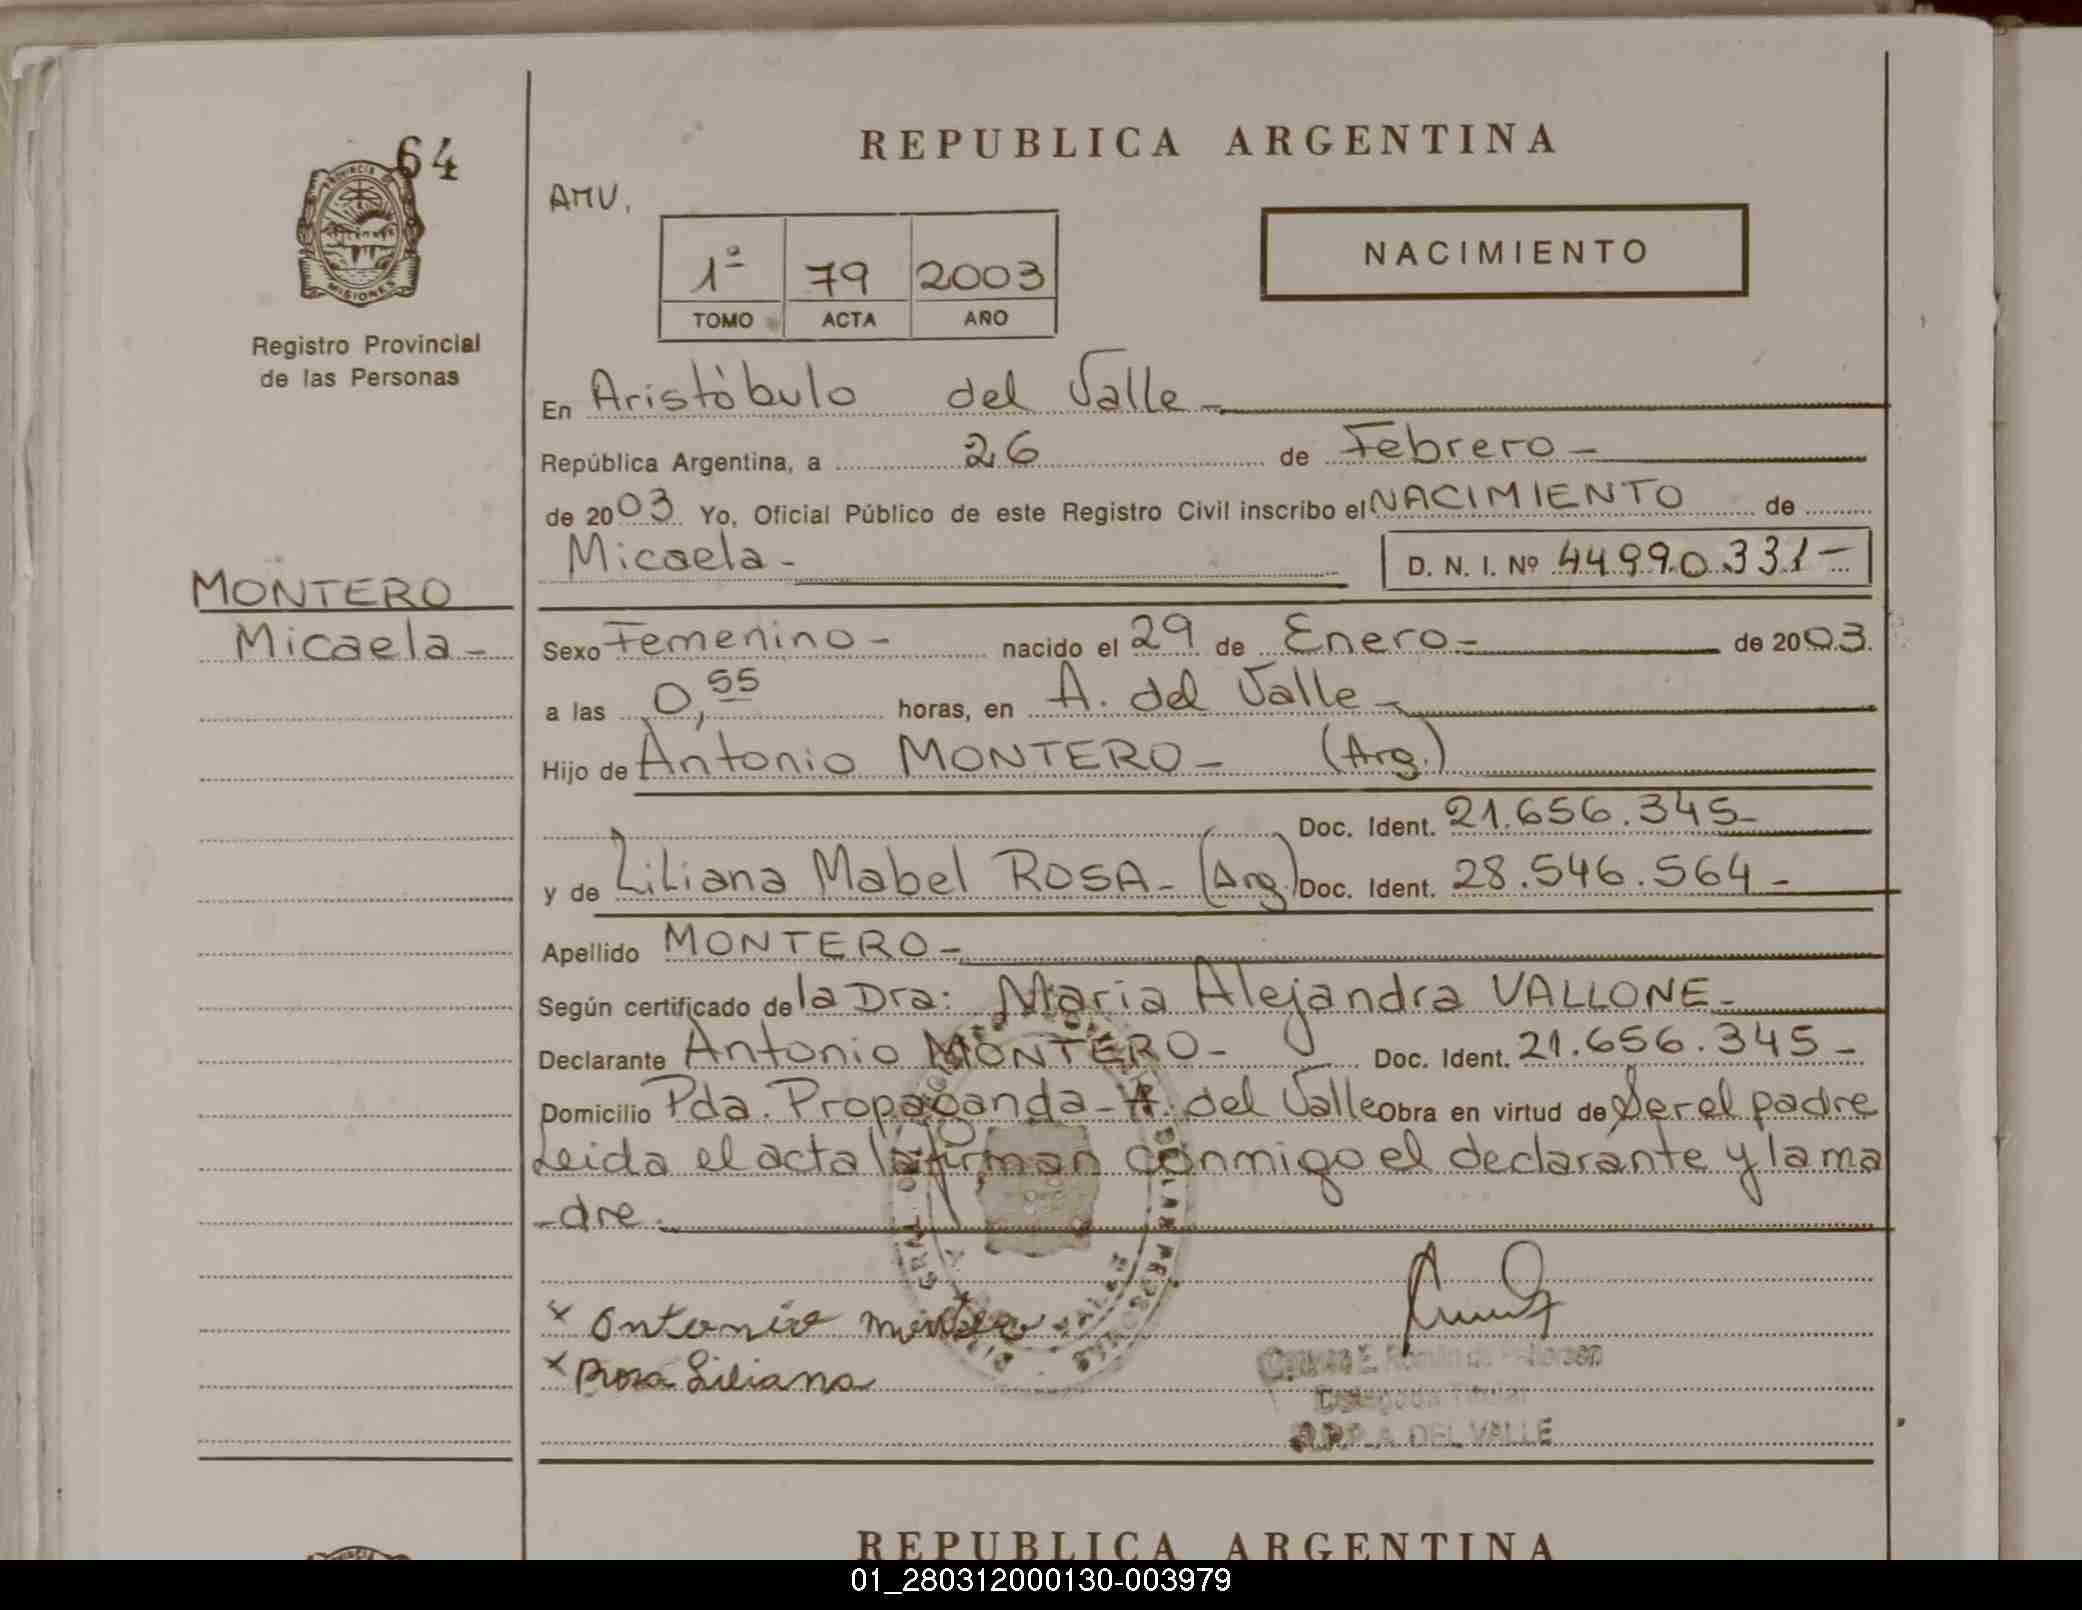 64
PROVINCIA DE
MISIONES
Registro Provincial
de las Personas
MONTERO
Micaela -
REPUBLICA ARGENTINA
AMV.
NACIMIENTO
1º 79 2003
TOMO ACTA AÑO
En Aristóbulo del Valle -
República Argentina, a 26 de Febrero -
de 2003. Yo, Oficial Público de este Registro Civil inscribo el NACIMIENTO de
Micaela - D. N. I. Nº 44.990.331 -
Sexo Femenino - nacido el 29 de Enero - de 2003.
a las 0,55 horas, en A. del Valle -
Hijo de Antonio MONTERO - (Arg.)
Doc. Ident. 21.656.345 -
y de Liliana Mabel ROSA - (Arg.) Doc. Ident. 28.546.564 -
Apellido MONTERO -
Según certificado de la Dra: María Alejandra VALLONE -
Declarante Antonio MONTERO - Doc. Ident. 21.656.345 -
Domicilio Pda. Propaganda - A. del Valle Obra en virtud de Ser el padre
Leida el acta la firman conmigo el declarante y la ma
-dre.
x Antonio Montero
x Rosa Liliana
Delegada Titular
A. DEL VALLE
REPUBLICA ARGENTINA
01_280312000130-003979